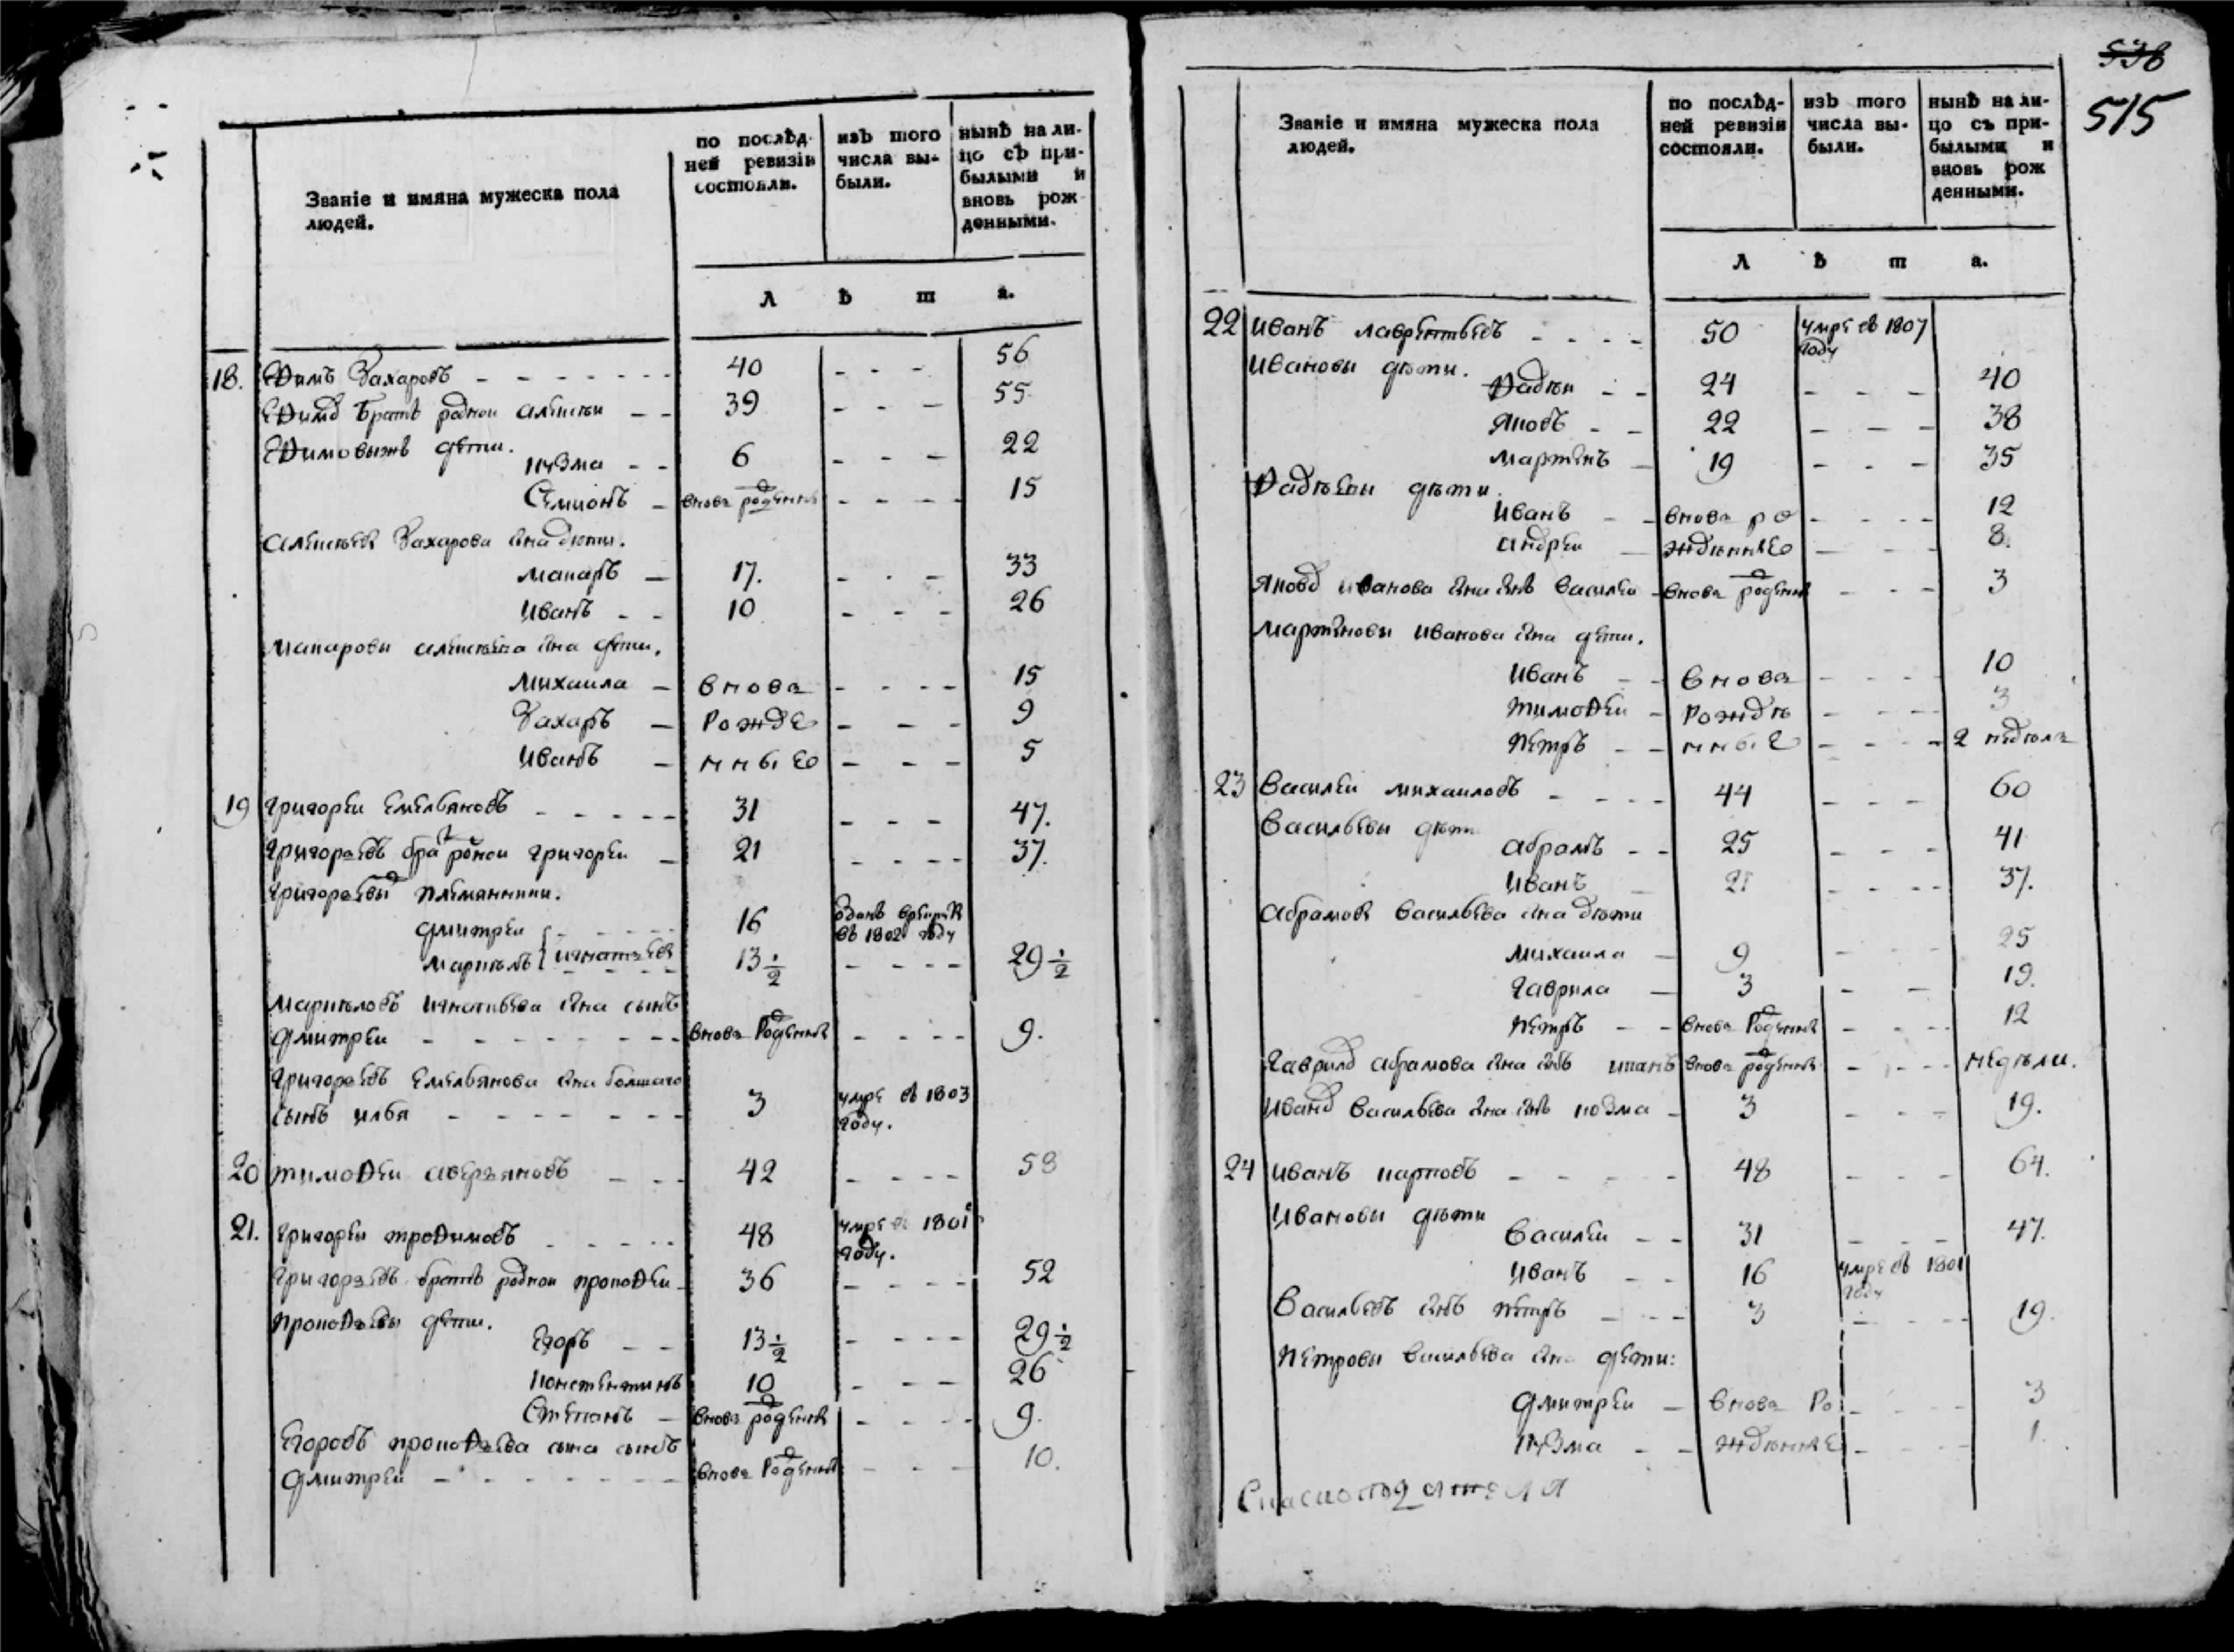 Званіе и имяна мужеска пола
людей.
по послѣд-
ней ревизіи
состояли.
изъ того
числа вы-
были.
нынѣ на ли-
цо съ при-
былыми и
вновь рож
денными.
Л ѣ т а.
18. Ѳимъ Захаровъ 40 - - - 56
братъ родной алексѣи 39 - - - 55
дѣти.
кузма 6 - - - 22
Семионъ внове рожденны 15
алексѣя Захарова сна дѣти.
макаръ 17. - - - 33
иванъ 10 - - - 26
макаровы алексѣева сна дѣти.
михаила внове 15
Захаръ рожде 9
иванъ нные 5
19 григореи емельяновъ 31 - - - 47.
григорьевъ бра рόнои григореи 21 - - - 37.
григорьевы племянники.
дмитреи 16 въ 1802 году
маркелъ игнатьевъ 13 1/2 - - - 29 1/2
маркеловъ игнатьева сна сынъ
дмитреи внове рожденны 9.
григорьевъ емельянова сна болшаго
сынъ илья 3 умре въ 1803
году.
20 тимоѳеи аверьяновъ 42 - - - 58
21. григореи троѳимовъ 48 умре въ 1801
году.
григорьевъ братъ роднои прокоѳеи 36 - - - 52
прокоѳьевы дѣти.
егоръ 13 1/2 - - - 29 1/2
константинъ 10 - - - 26
Степанъ внове рожденны 9.
егоровъ прокоѳьева сына сынъ
дмитреи внове рожденны 10.
536
515
Званіе и имяна мужеска пола
людей.
по послѣд-
ней ревизіи
состояли.
изъ того
числа вы-
были.
нынѣ на ли-
цо съ при-
былыми и
вновь рож
денными.
Л ѣ т а.
22 иванъ лаврентьевъ 50 умре въ 1807
году
ивановы дѣти.
Ѳадѣи 24 - - - 40
яковъ 22 - - - 38
мартынъ 19 - - - 35
Ѳадѣевы дѣти.
иванъ внове ро 12
андреи жденные 8.
яковъ иванова сна снъ василеи внове рожденны 3
мартыновы иванова сна дѣти.
иванъ внове 10
тимоѳеи рожде 3
петръ нные 2 недели
23 василеи михаиловъ 44 - - - 60
васильевы дѣти
абрамъ 25 - - - 41
иванъ 21 - - - 37.
абрамовы васильева сна дѣти
михаила 9 - - - 25
гаврила 3 - - - 19.
петръ внове рожденны 12
абрамова сна снъ внове рожденны недѣли.
васильева сна снъ козма 3 - - - 19.
24 иванъ карповъ 48 - - - 64.
ивановы дѣти
василеи 31 - - - 47.
иванъ 16 умре въ 1801
году
васильевъ снъ петръ 3 - - - 19.
петровы васильева сна дѣти:
дмитреи внове ро 3
кузма жденные 1.